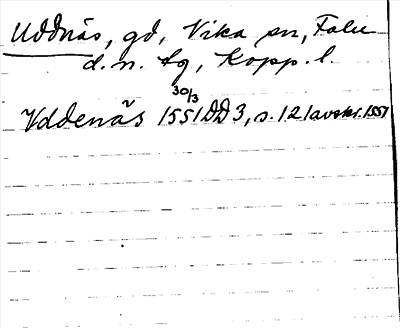 Uddnäs, gd, Vika sn, Falu
d.n. tg, Kopp. l.
30/3
Vddenäs 1551 DD 3, s. 121 avskr. 1557